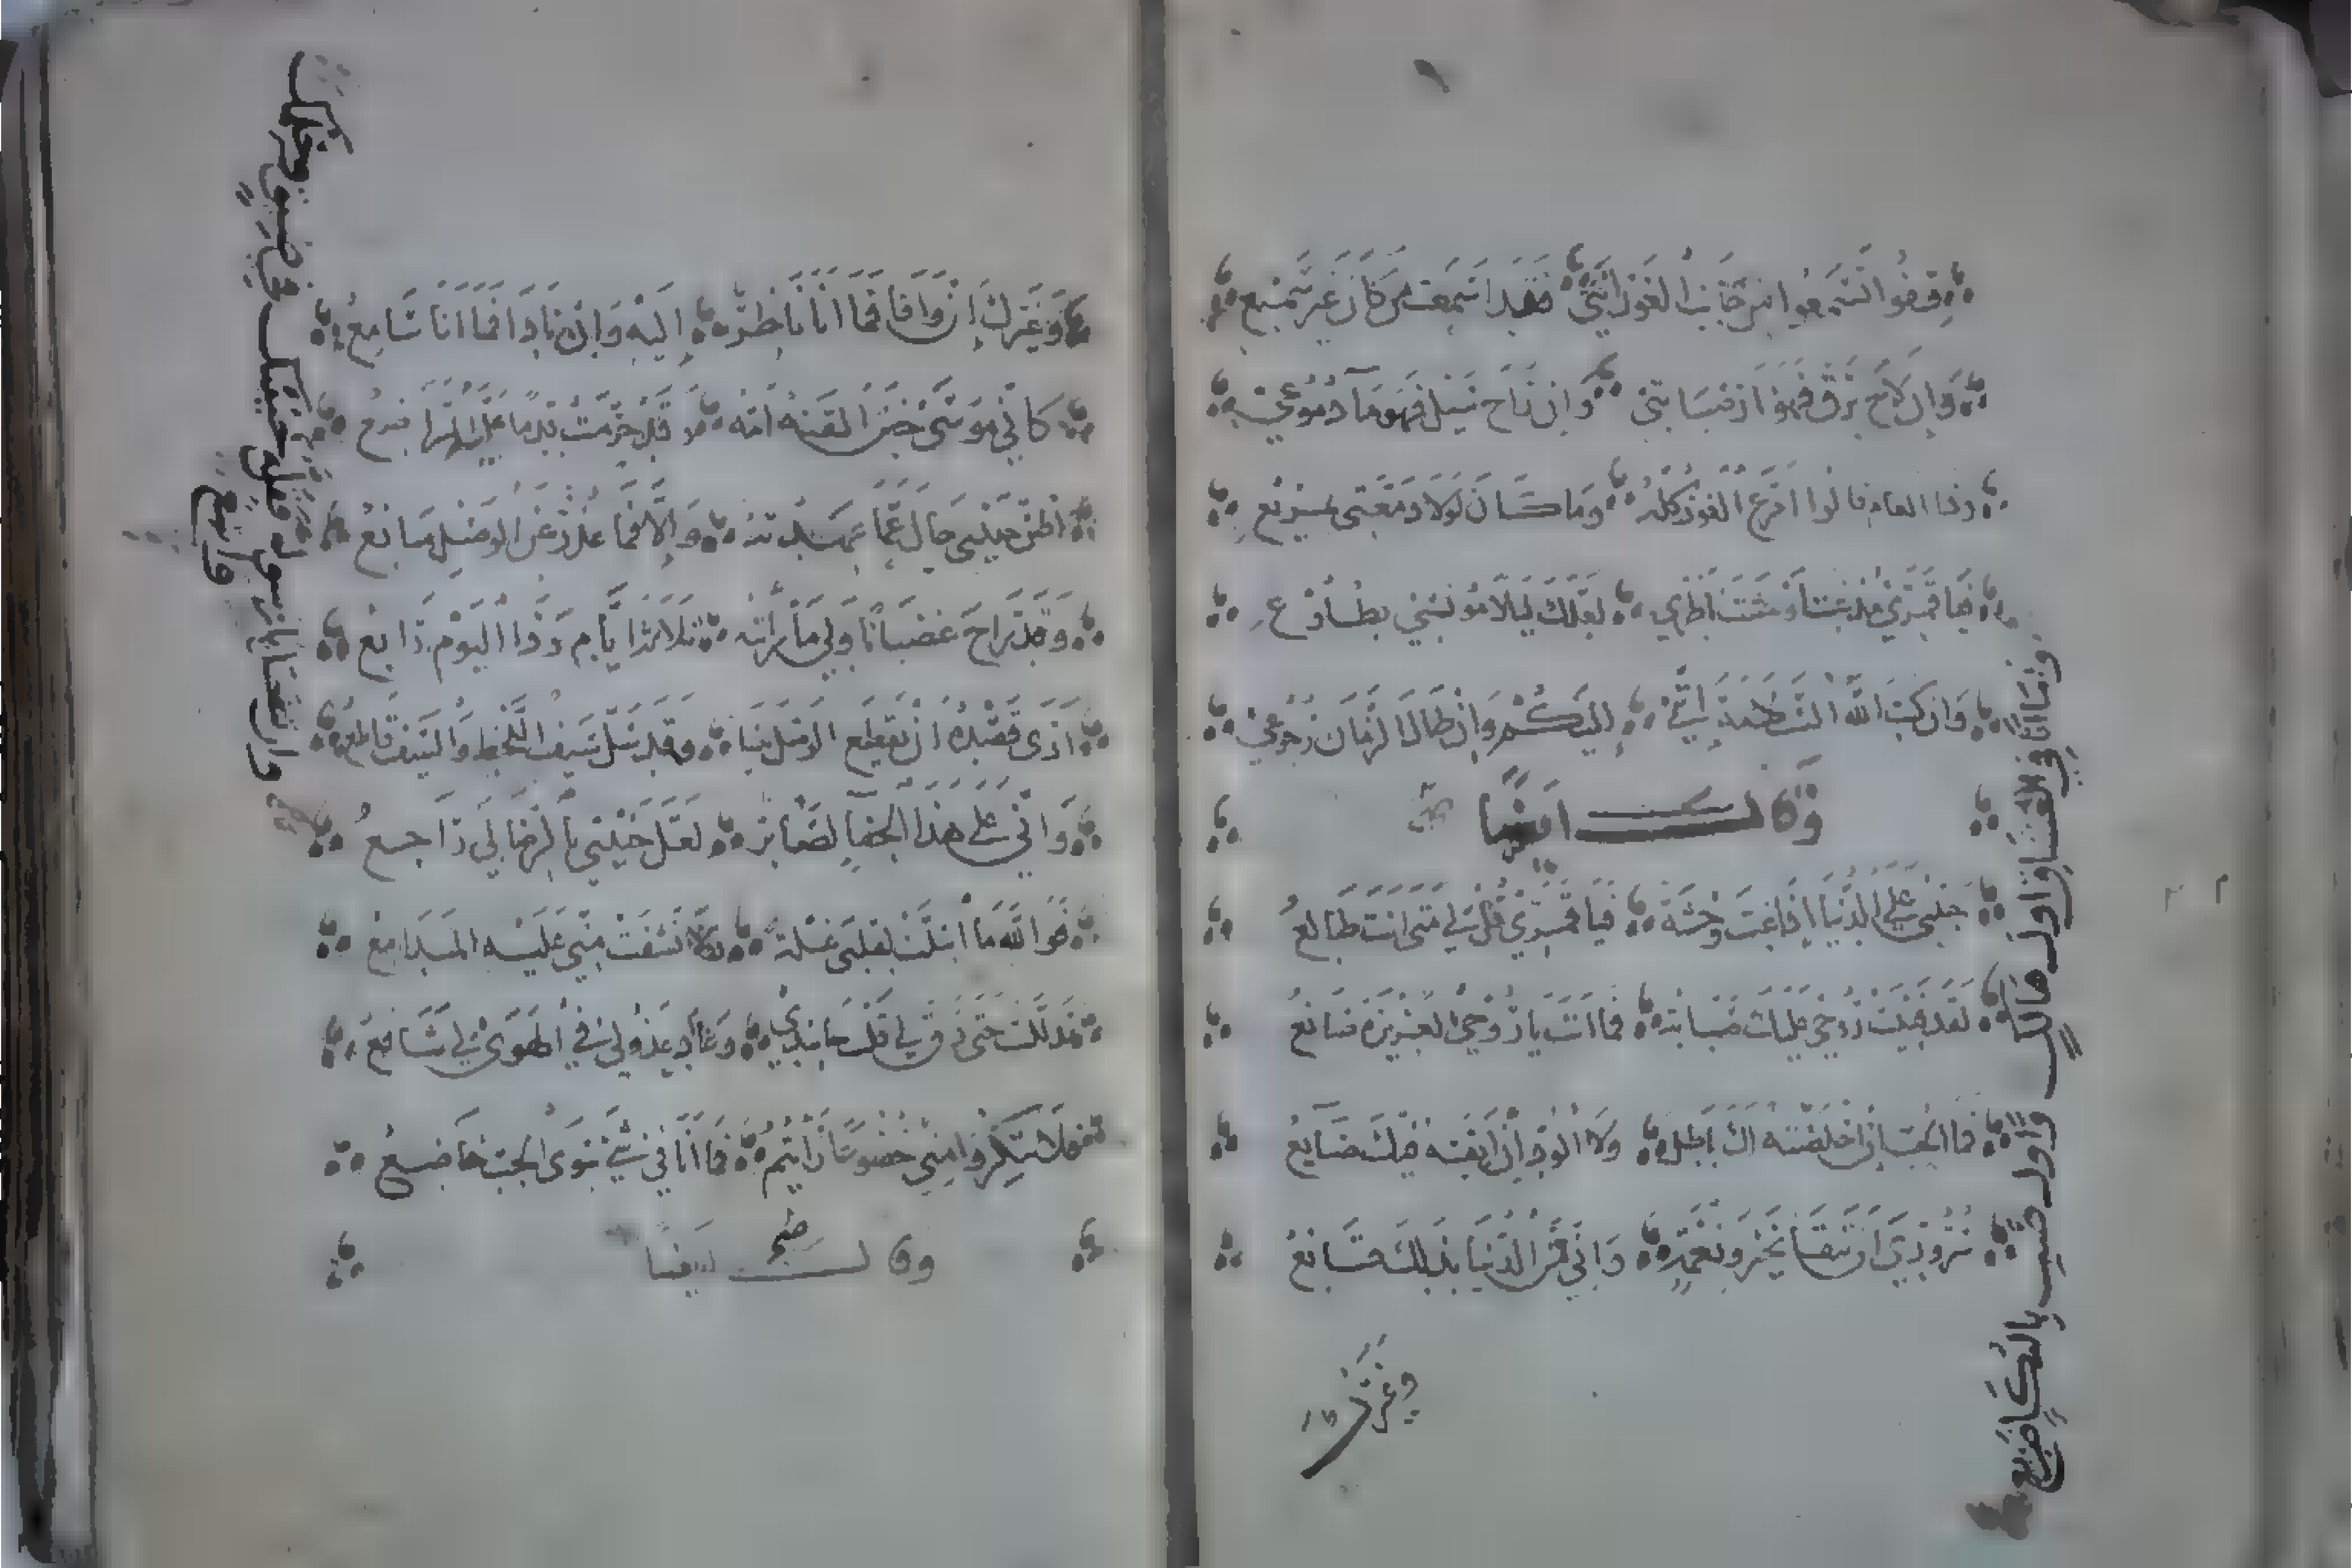 قفوا لتسمعوا من جانب الغور انتي فقد اسمعت من كان غير سميع
وان لاح برق فهو نار صبابتي وان راح سيل فهو ما دموعي
وذا العام قالوا امرع الغور كله وما كان لولا دمعتي بمريع
فيا قمري مذ غبت اوحشت ناظري لعلك ليلا مونسي بطلوع
وان كتب الله السلامة انني اليكم وان طال الزمان رجوعي
وقال ايضا
حبيبي على الدنيا اذا غبت وحشة فيا قمري قل لي متى انت طالع
لقد فنيت روحي عليك صبابة فما انت يا روحي العزيزة صانع
فما الحب ان اخلصته لك باطل ولا الود ان ابقيته فيك ضايع
سروري ان تبقى بخير ونعمة واني من الدنيا بذلك قانع
وغيرك
وما انا في العشاق اول هالك واول صب بالكا
وغيرك ان وافا فما انا ناظر اليه وان نادا فما انا سامع
كاني موسى حين القته امه وقد حرمت قدما عليه المراضع
اظن حبيبي حال عما عهدته والا فما عذر عن الوصل مانع
وقد راح غضبانا ولي ما رايته ثلاثة ايام وذا اليوم رابع
ارى قصده ان يقطع الوصل بيننا وقد سل سيف اللحظ والسيف قاطع
واني على هذا الجفا لصابر لعل حبيبي بالرضا لي راجع
فوالله ما ابتلت لقلبي غلة ولا نشفت مني عليه المدامع
تذللت حتى رق لي قلب حاسدي وعاد عذولي في الهوى لي شافع
فلا تنكروا مني خضوعا رايتم فما انا في شي سوى الحب خاضع
وقال ايضا
صح